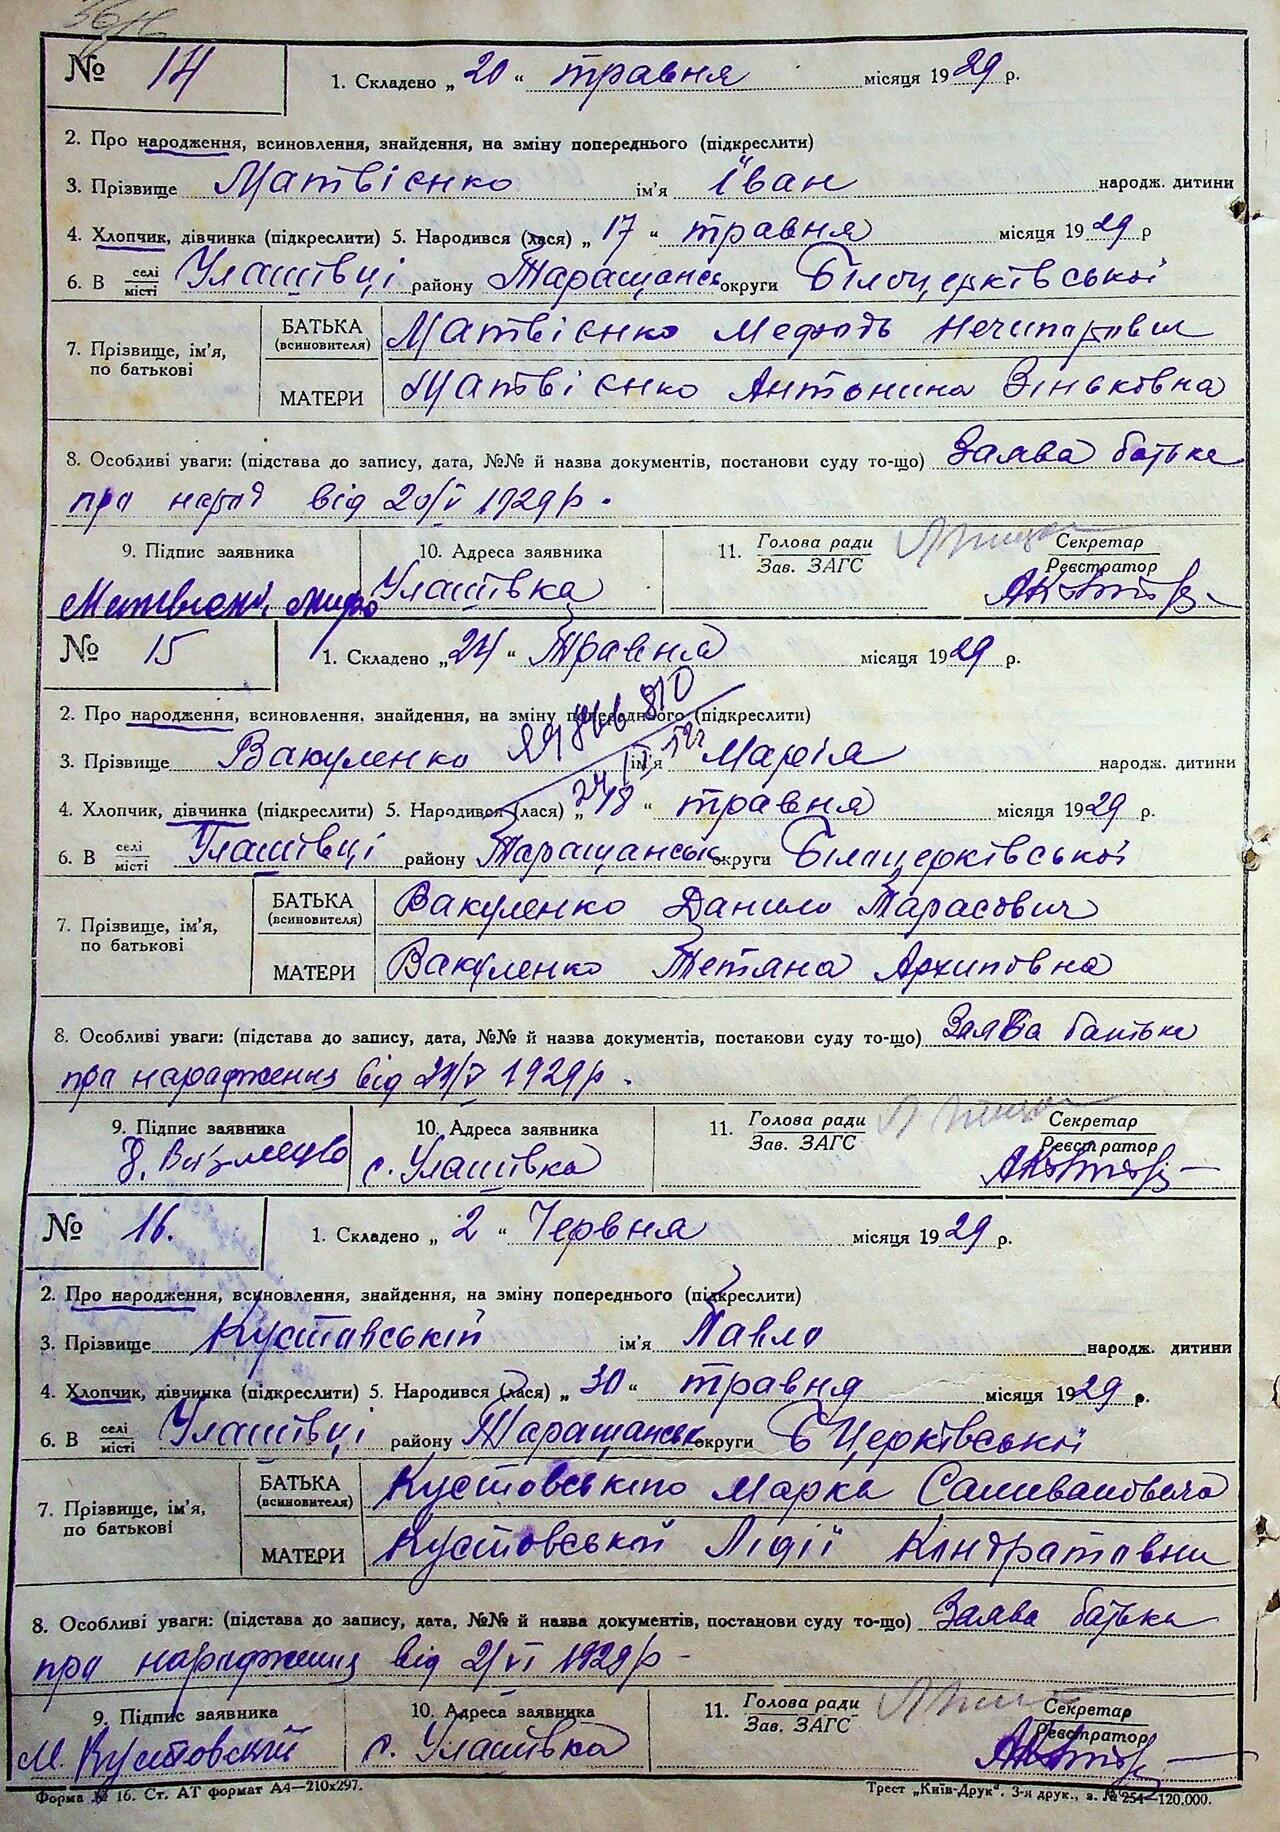 № 14 1. Складено „20“ травня місяця 1929 р.
2. Про народження, всиновлення, знайдення, на зміну попереднього (підкреслити)
3. Прізвище Матвієнко ім'я Іван народж. дитини
4. Хлопчик, дівчинка (підкреслити) 5. Народився (лася) „17“ травня місяця 1929 р
6. В селі Улашівці району Таращанськ округи Білоцерківської
місті
БАТЬКА Матвієнко Мефодь Нечипорович
(всиновителя)
7. Прізвище, ім'я,
по батькові
МАТЕРИ Матвієнко Антонина Зіньковна
8. Особливі уваги: (підстава до запису, дата, №№ й назва документів, постанови суду то-що) Заява батька
про народ від 20/V 1929 р.
9. Підпис заявника 10. Адреса заявника 11. Голова ради Секретар
Зав. ЗАГС Реєстратор
Улашівка
№ 15 1. Складено „24“ Травня місяця 1929 р.
2. Про народження, всиновлення, знайдення, на зміну попереднього (підкреслити)
3. Прізвище Вакуленко ім'я Марія народж. дитини
4. Хлопчик, дівчинка (підкреслити) 5. Народився (лася) „18“ травня місяця 1929 р.
6. В селі Улашівці району Таращанськ округи Білоцерківської
місті
БАТЬКА Вакуленко Данило Тарасович
(всиновителя)
7. Прізвище, ім'я,
по батькові
МАТЕРИ Вакуленко Тетяна Архиповна
8. Особливі уваги: (підстава до запису, дата, №№ й назва документів, постакови суду то-що) Заява батька
про народження від 24/V 1929 р.
9. Підпис заявника 10. Адреса заявника 11. Голова ради Секретар
Зав. ЗАГС Реєстратор
с. Улашівка
№ 16. 1. Складено „2“ Червня місяця 1929 р.
2. Про народження, всиновлення, знайдення, на зміну попереднього (підкреслити)
3. Прізвище Куставській ім'я Павло народж. дитини
4. Хлопчик, дівчинка (підкреслити) 5. Народився (лася) „30“ травня місяця 1929 р.
6. В селі Улашівці району Таращанськ округи Б Церківської
місті
БАТЬКА Кустовського Марка
(всиновителя)
7. Прізвище, ім'я,
по батькові
МАТЕРИ Кустовській Лідії Кондратовни
8. Особливі уваги: (підстава до запису, дата, №№ й назва документів, постанови суду то-що) Заява батька
про народження від 2/VI 1929 р
9. Підпис заявника 10. Адреса заявника 11. Голова ради Секретар
Зав. ЗАГС Реєстратор
М. Кустовский с. Улашівка
Форма № 16. Ст. АТ формат А4—210х297. Трест „Київ-Друк“. 3-я друк., з. № 254—120.000.